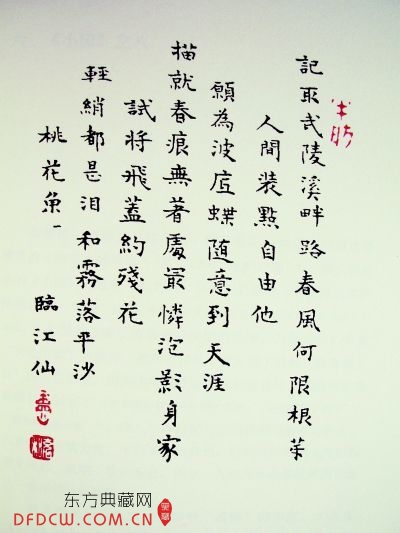 記取武陵溪畔路春風何限根芽
人間装點自由他
願為波底蝶随意到天涯
描就春痕無著處最憐泡影身家
試將飛蓋約殘花
輕綃都是泪和霧落平沙
桃花魚一 臨江仙
东方典藏网
DFDCW.COM.CN